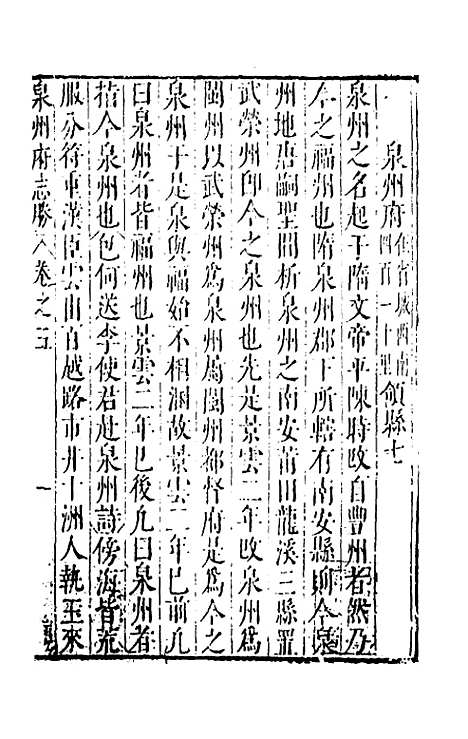 泉州府在省城西南四百一十里領縣七
泉州之名起于隋文帝平陳時改自豐州者然乃
今之福州也隋泉州郡下所轄有南安縣卽今泉
州地唐嗣聖間析泉州之南安莆田龍溪三縣置
武榮州卽今之泉州也先是景雲二年改泉州爲
閩州以武榮州爲泉州屬閩州都督府是爲今之
泉州于是泉與福始不相溷故景雲二年已前凡
曰泉州者皆福州也景雲二年已後凡曰泉州者
指今泉州也包何送李使君赴泉州詩傍海皆荒
服分符重漢臣雲山百越路市井十洲人執玉來
泉州府志勝 卷之五 一